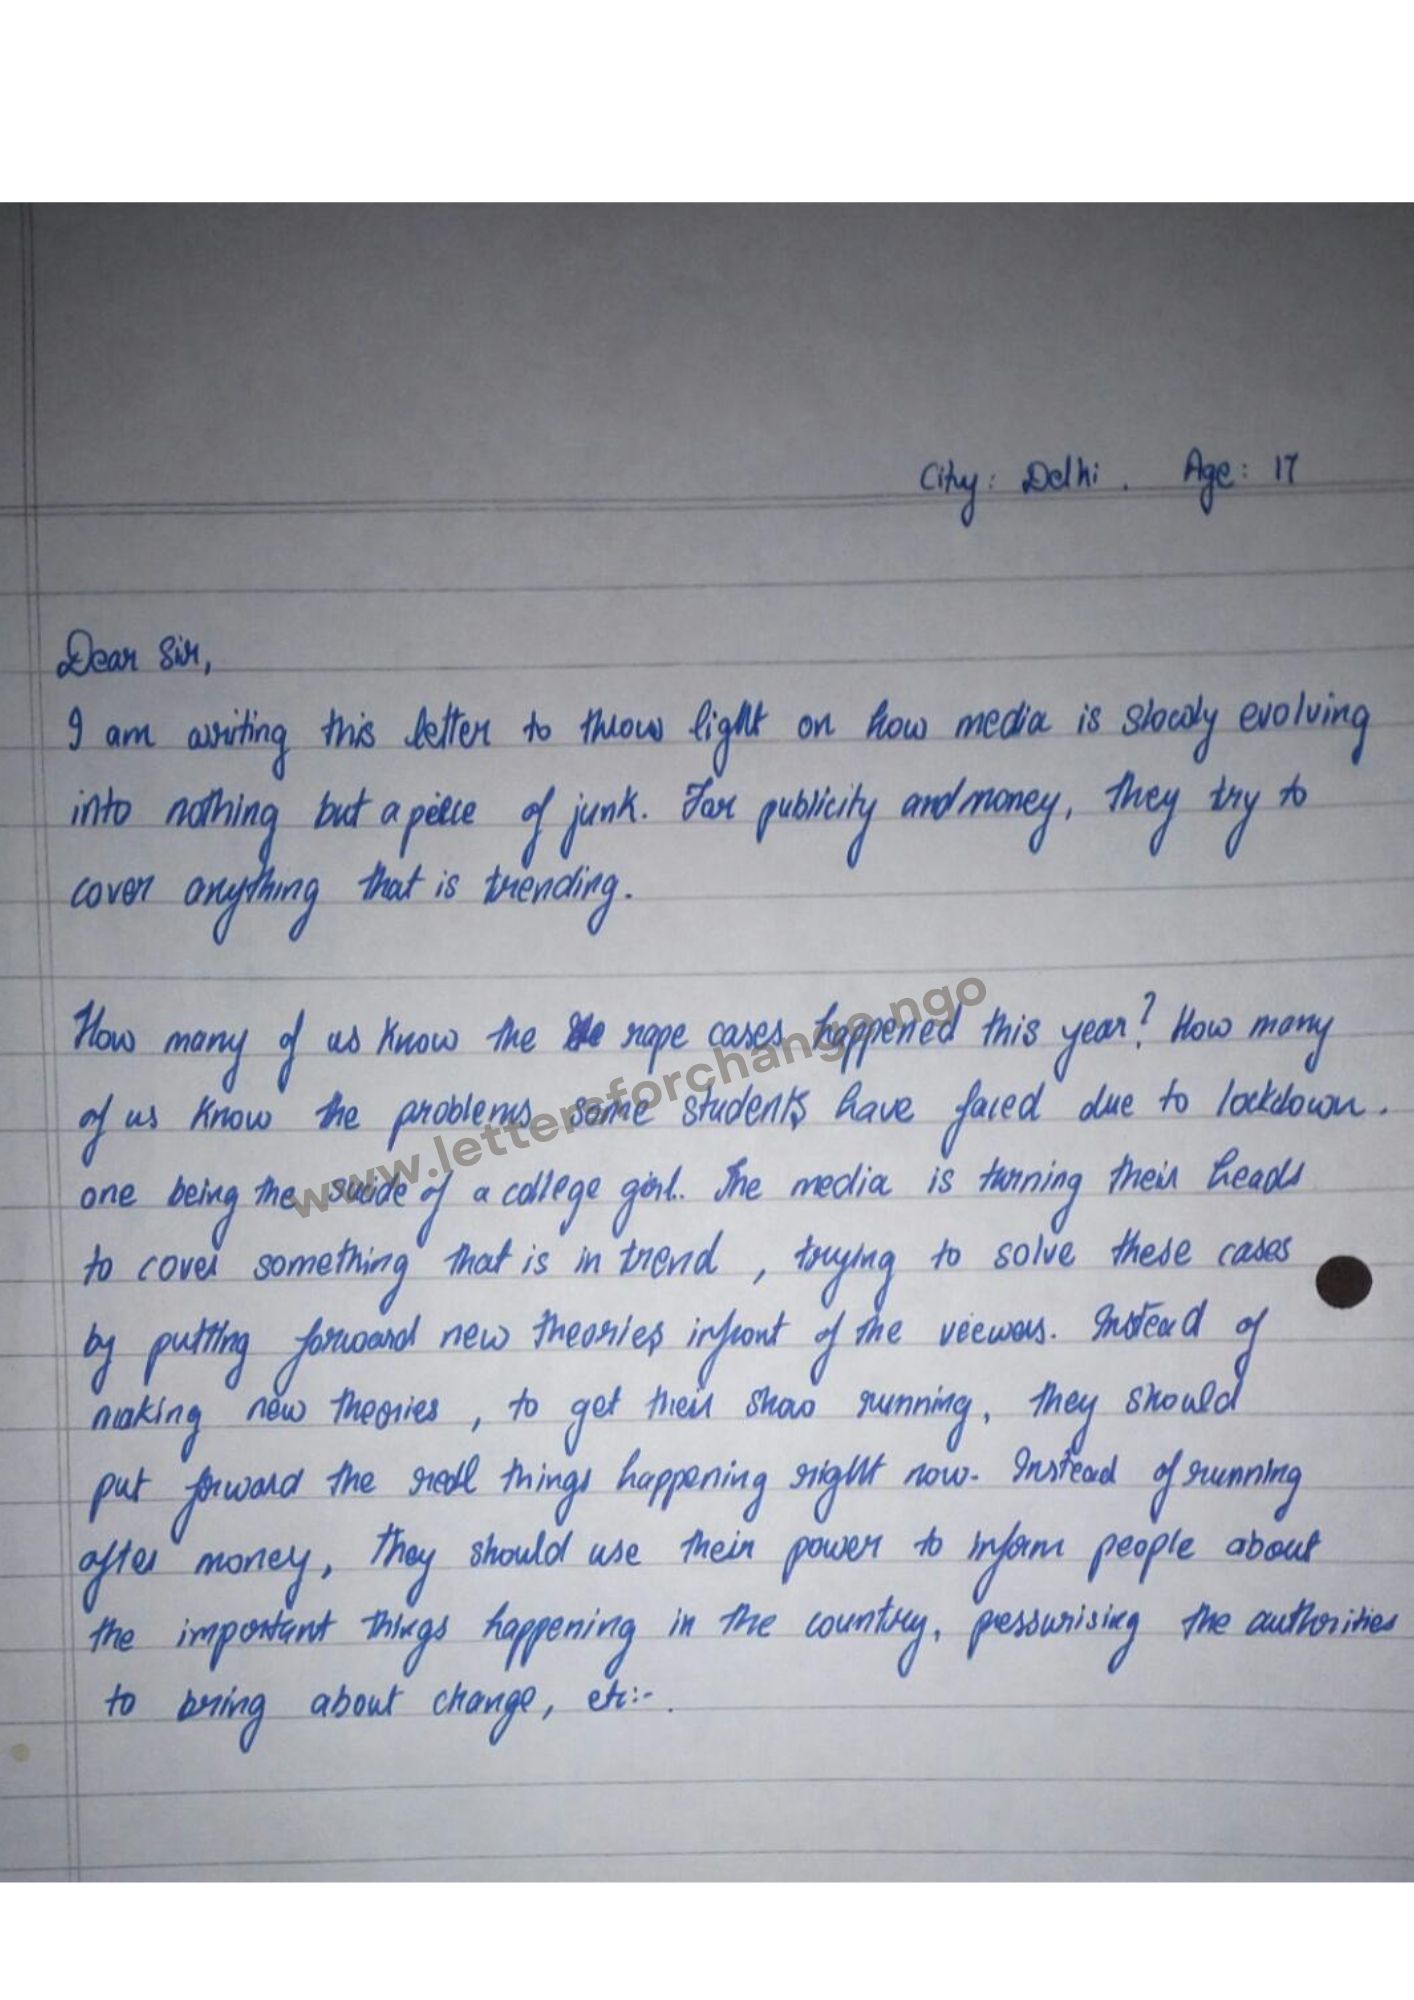 City: Delhi. Age: 17
Dear Sir,
I am writing this letter to throw light on how media is slowly evolving
into nothing but a peice of junk. For publicity and money, they try to
cover anything that is trending.
How many of us know the rape cases happened this year? How many
of us know the problems some students have faced due to lockdown.
one being the suicide of a college girl. The media is turning their heads
to cover something that is in trend, trying to solve these cases
by putting forward new theories infront of the viewers. Instead of
making new theories, to get their show running, they should
put forward the real things happening right now. Instead of running
after money, they should use their power to inform people about
the important things happening in the country, pressurising the authorities
to bring about change, etc:-.
www.lettersforchange.ngo